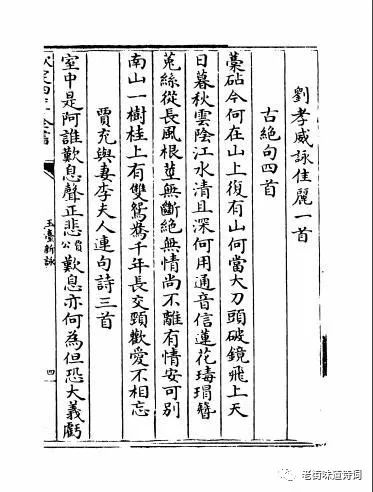 劉孝威詠佳麗一首
古絶句四首
藁砧今何在山上復有山何當大刀頭破鏡飛上天
日暮秋雲陰江水清且深何用通音信蓮花瑇瑁簪
菟絲從長風根莖無斷絶無情尚不離有情安可别
南山一樹桂上有雙鴛鴦千年長交頸歡愛不相忘
賈充與妻李夫人連句詩三首
室中是阿誰歎息聲正悲賈公歎息亦何為但恐大義虧
玉臺新詠
四
老街味道诗词